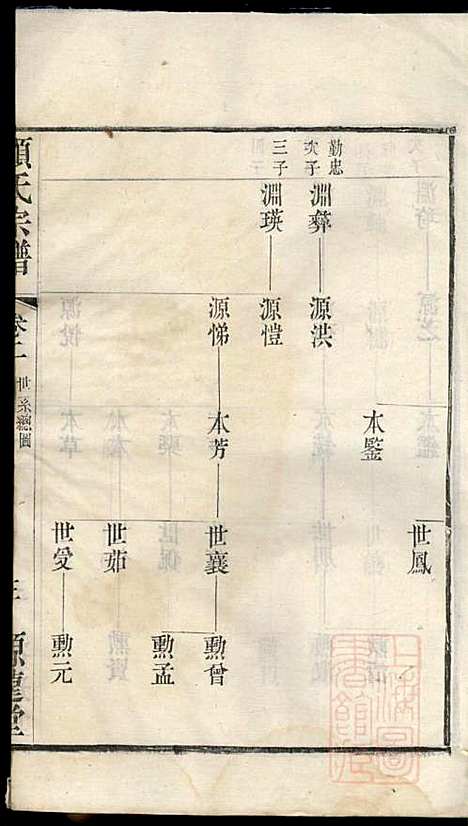 世鳳
本鑒
勤忠次子
淵彝
源洪
三子
淵瑛
源愷
源悌
本芳
世襄
勲曾
勲孟
世茹
世爱
勲元
氏宗譜
卷二
世系總圖